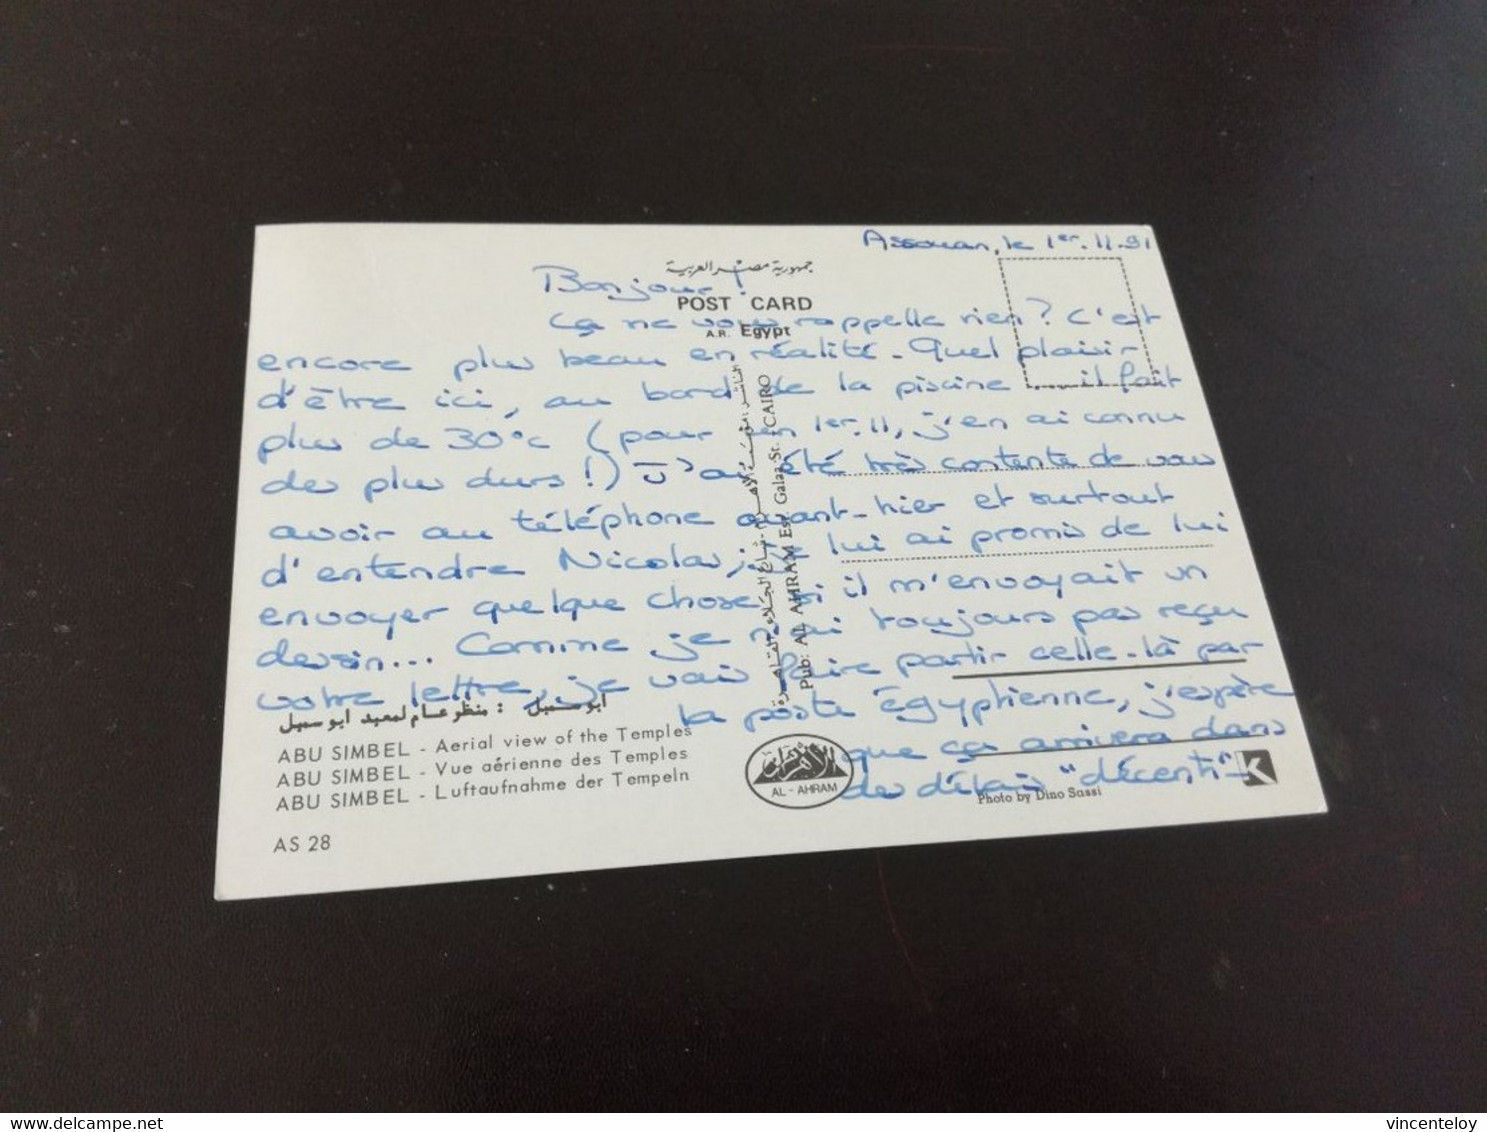 Assouan, le 1er.11.91
جمهورية مصر العربية
Bonjour !
POST CARD
ça ne vous rappelle rien ? C'est
A.R. Egypt
encore plus beau en réalité. Quel plaisir
d'être ici, au bord de la piscine .... il fait
plus de 30°c (pour un 1er.11, j'en ai connu
des plus durs !) J'ai été très contente de vous
avoir au téléphone avant-hier et surtout
d'entendre Nicolas ; je lui ai promis de lui
envoyer quelque chose si il m'envoyait un
dessin... Comme je n'ai toujours pas reçu
votre lettre, je vais faire partir celle-là par
la poste égyptienne, j'espère
que ça arrivera dans
des délais "décents"
Pub: AL AHRAM Est. Galaa St. - CAIRO
ابو سمبل : منظر عام لمعبد ابو سمبل
ABU SIMBEL - Aerial view of the Temples
ABU SIMBEL - Vue aérienne des Temples
ABU SIMBEL - Luftaufnahme der Tempeln
AS 28
الأهرام
AL - AHRAM
K
Photo by Dino Sassi
delcampe.net
vincenteloy